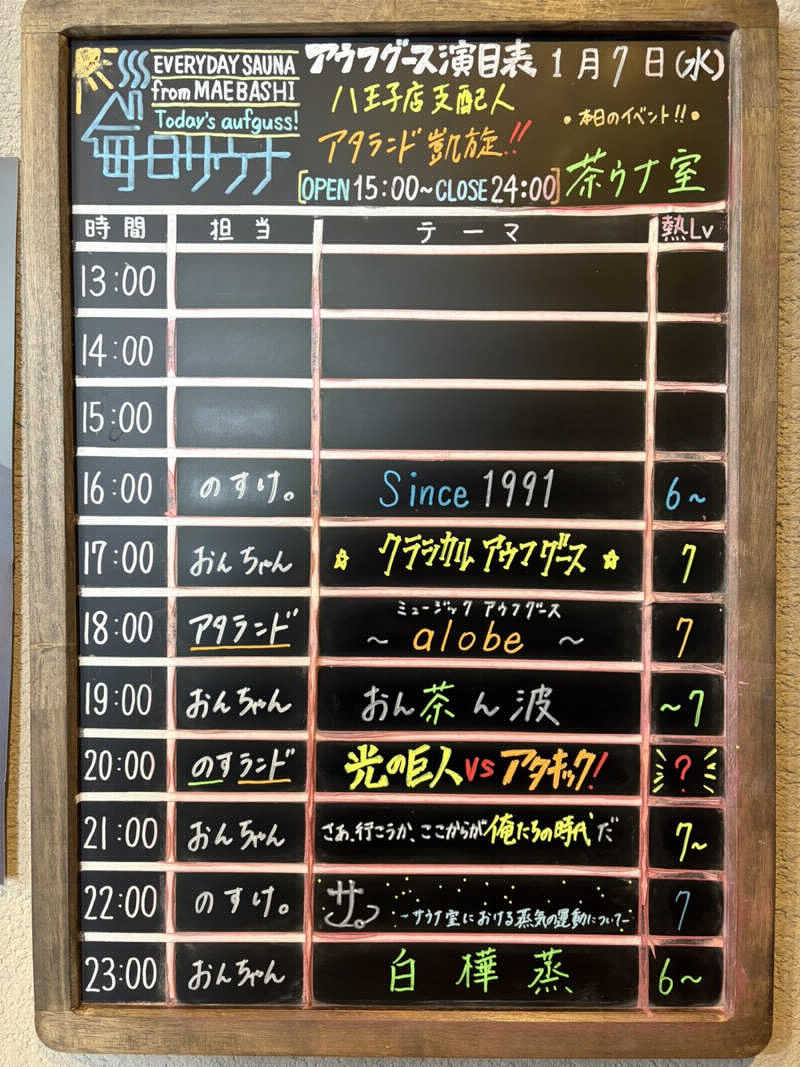 EVERYDAY SAUNA
from MAEBASHI
Today's aufguss!
毎日サウナ
アウフグース演目表 1月7日(水)
八王子店支配人
アタランド凱旋!!
[OPEN 15:00~CLOSE 24:00]
•本日のイベント!!•
茶ウナ室
時間 担当 テーマ 熱Lv
13:00
14:00
15:00
16:00 のすけ。 Since 1991 6~
17:00 おんちゃん ☆ クラシカル アウフグース ☆ 7
18:00 アタランド ミュージック アウフグース ~ alobe ~ 7
19:00 おんちゃん おん茶ん波 ~7
20:00 のすランド 光の巨人 vs アタキック! ?
21:00 おんちゃん さあ、行こうか、ここからが俺たちの時代だ 7~
22:00 のすけ。 サ。 -サウナ室における蒸気の運動について- 7
23:00 おんちゃん 白樺蒸 6~